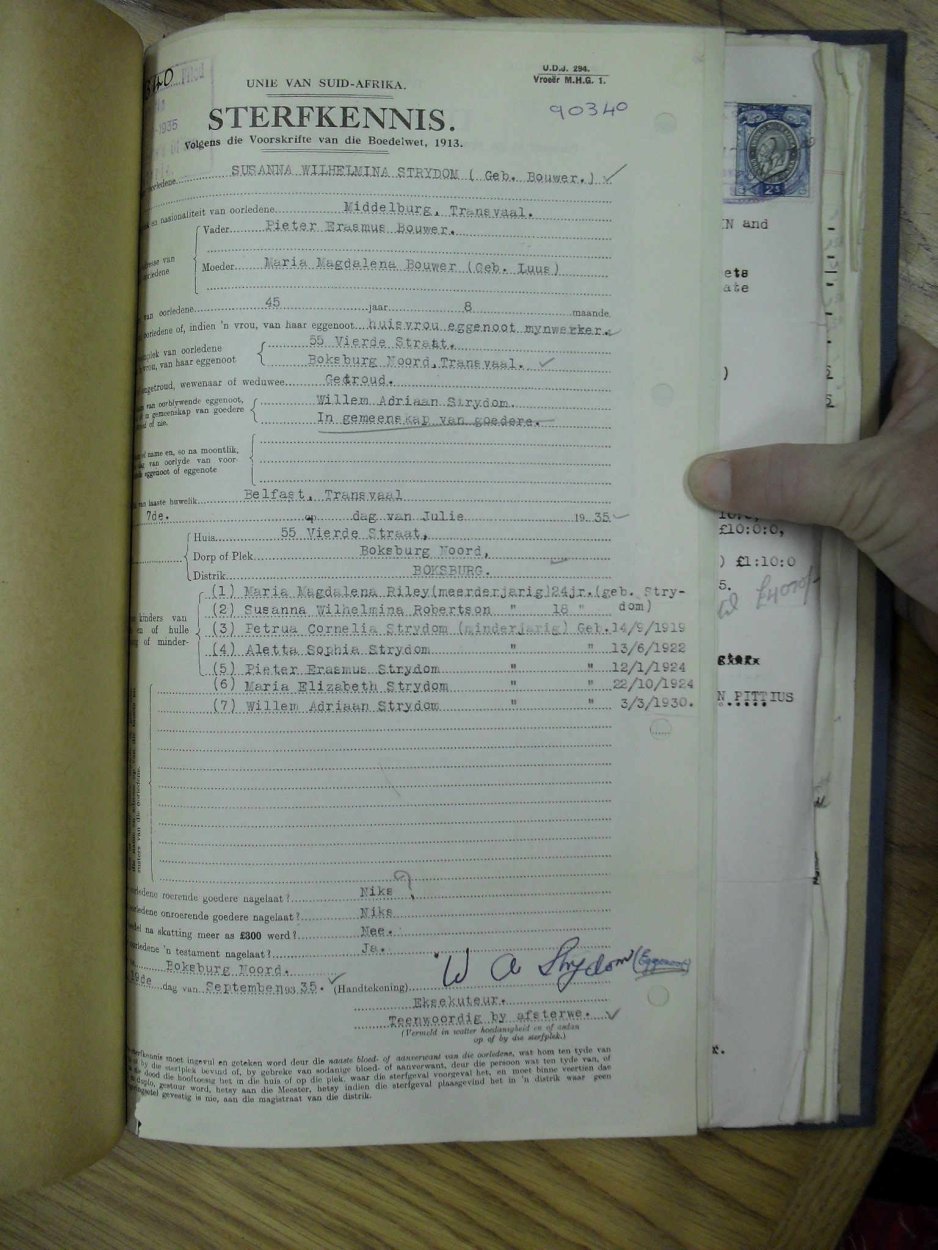 U.D.J. 294.
Vroeër M.H.G. 1.
UNIE VAN SUID-AFRIKA.
90340
STERFKENNIS.
-1935
Volgens die Voorskrifte van die Boedelwet, 1913.
oorledene SUSANNA WILHELMINA STRYDOM ( Geb. Bouwer.)
en nasionaliteit van oorledene Middelburg, Transvaal.
Vader Pieter Erasmus Bouwer.
van
oorledene
Moeder Maria Magdalena Bouwer (Geb. Luus)
van oorledene 45 jaar 8 maande
oorledene of, indien 'n vrou, van haar eggenoot huisvrou eggenoot mynwerker.
van oorledene 55 Vierde Straat.
vrou, van haar eggenoot Boksburg Noord, Transvaal.
ongetroud, wewenaar of weduwee Getroud.
van oorblywende eggenoot, Willem Adriaan Strydom.
in gemeenskap van goedere In gemeenskap van goedere.
of nie.
name en, so na moontlik,
dag van oorlyde van voor-
eggenoot of eggenote
van laaste huwelik Belfast, Transvaal
7de. op dag van Julie 1935
Huis 55 Vierde Straat,
Dorp of Plek Boksburg Noord,
Distrik BOKSBURG.
(1) Maria Magdalena Riley(meerderjarig)24jr.(geb. Stry-
(2) Susanna Wilhelmina Robertson " 18 " dom)
kinders van
(3) Petrua Cornelia Strydom (minderjarig) Geb.14/9/1919
en of hulle
(4) Aletta Sophia Strydom " " 13/6/1922
of minder-
(5) Pieter Erasmus Strydom " " 12/1/1924
(6) Maria Elizabeth Strydom " " 22/10/1924
(7) Willem Adriaan Strydom " " 3/3/1930.
oorledene roerende goedere nagelaat? Niks
oorledene onroerende goedere nagelaat? Niks
na skatting meer as £300 werd? Nee.
oorledene 'n testament nagelaat? Ja.
Boksburg Noord.
19de dag van September 1935. (Handtekening) W A Strydom (Eggenoot)
Eksekuteur.
Teenwoordig by afsterwe.
(Vermeld in watter hoedanigheid en of antan
op of by die sterfplek.)
sterfkennis moet ingevul en geteken word deur die naaste bloed- of aanverwant van die oorledene, wat hom ten tyde van
by die sterfplek bevind of, by gebreke van sodanige bloed- of aanverwant, deur die persoon wat ten tyde van, of
die dood die hooftoesig het in die huis of op die plek, waar die sterfgeval voorgeval het, en moet binne veertien dae
in duplo, gestuur word, hetsy aan die Meester, hetsy indien die sterfgeval plaasgevind het in 'n distrik waar geen
gevestig is nie, aan die magistraat van die distrik.
N and
ets
ate
£10:0:0,
) £1:10:0
5.
N PITTIUS